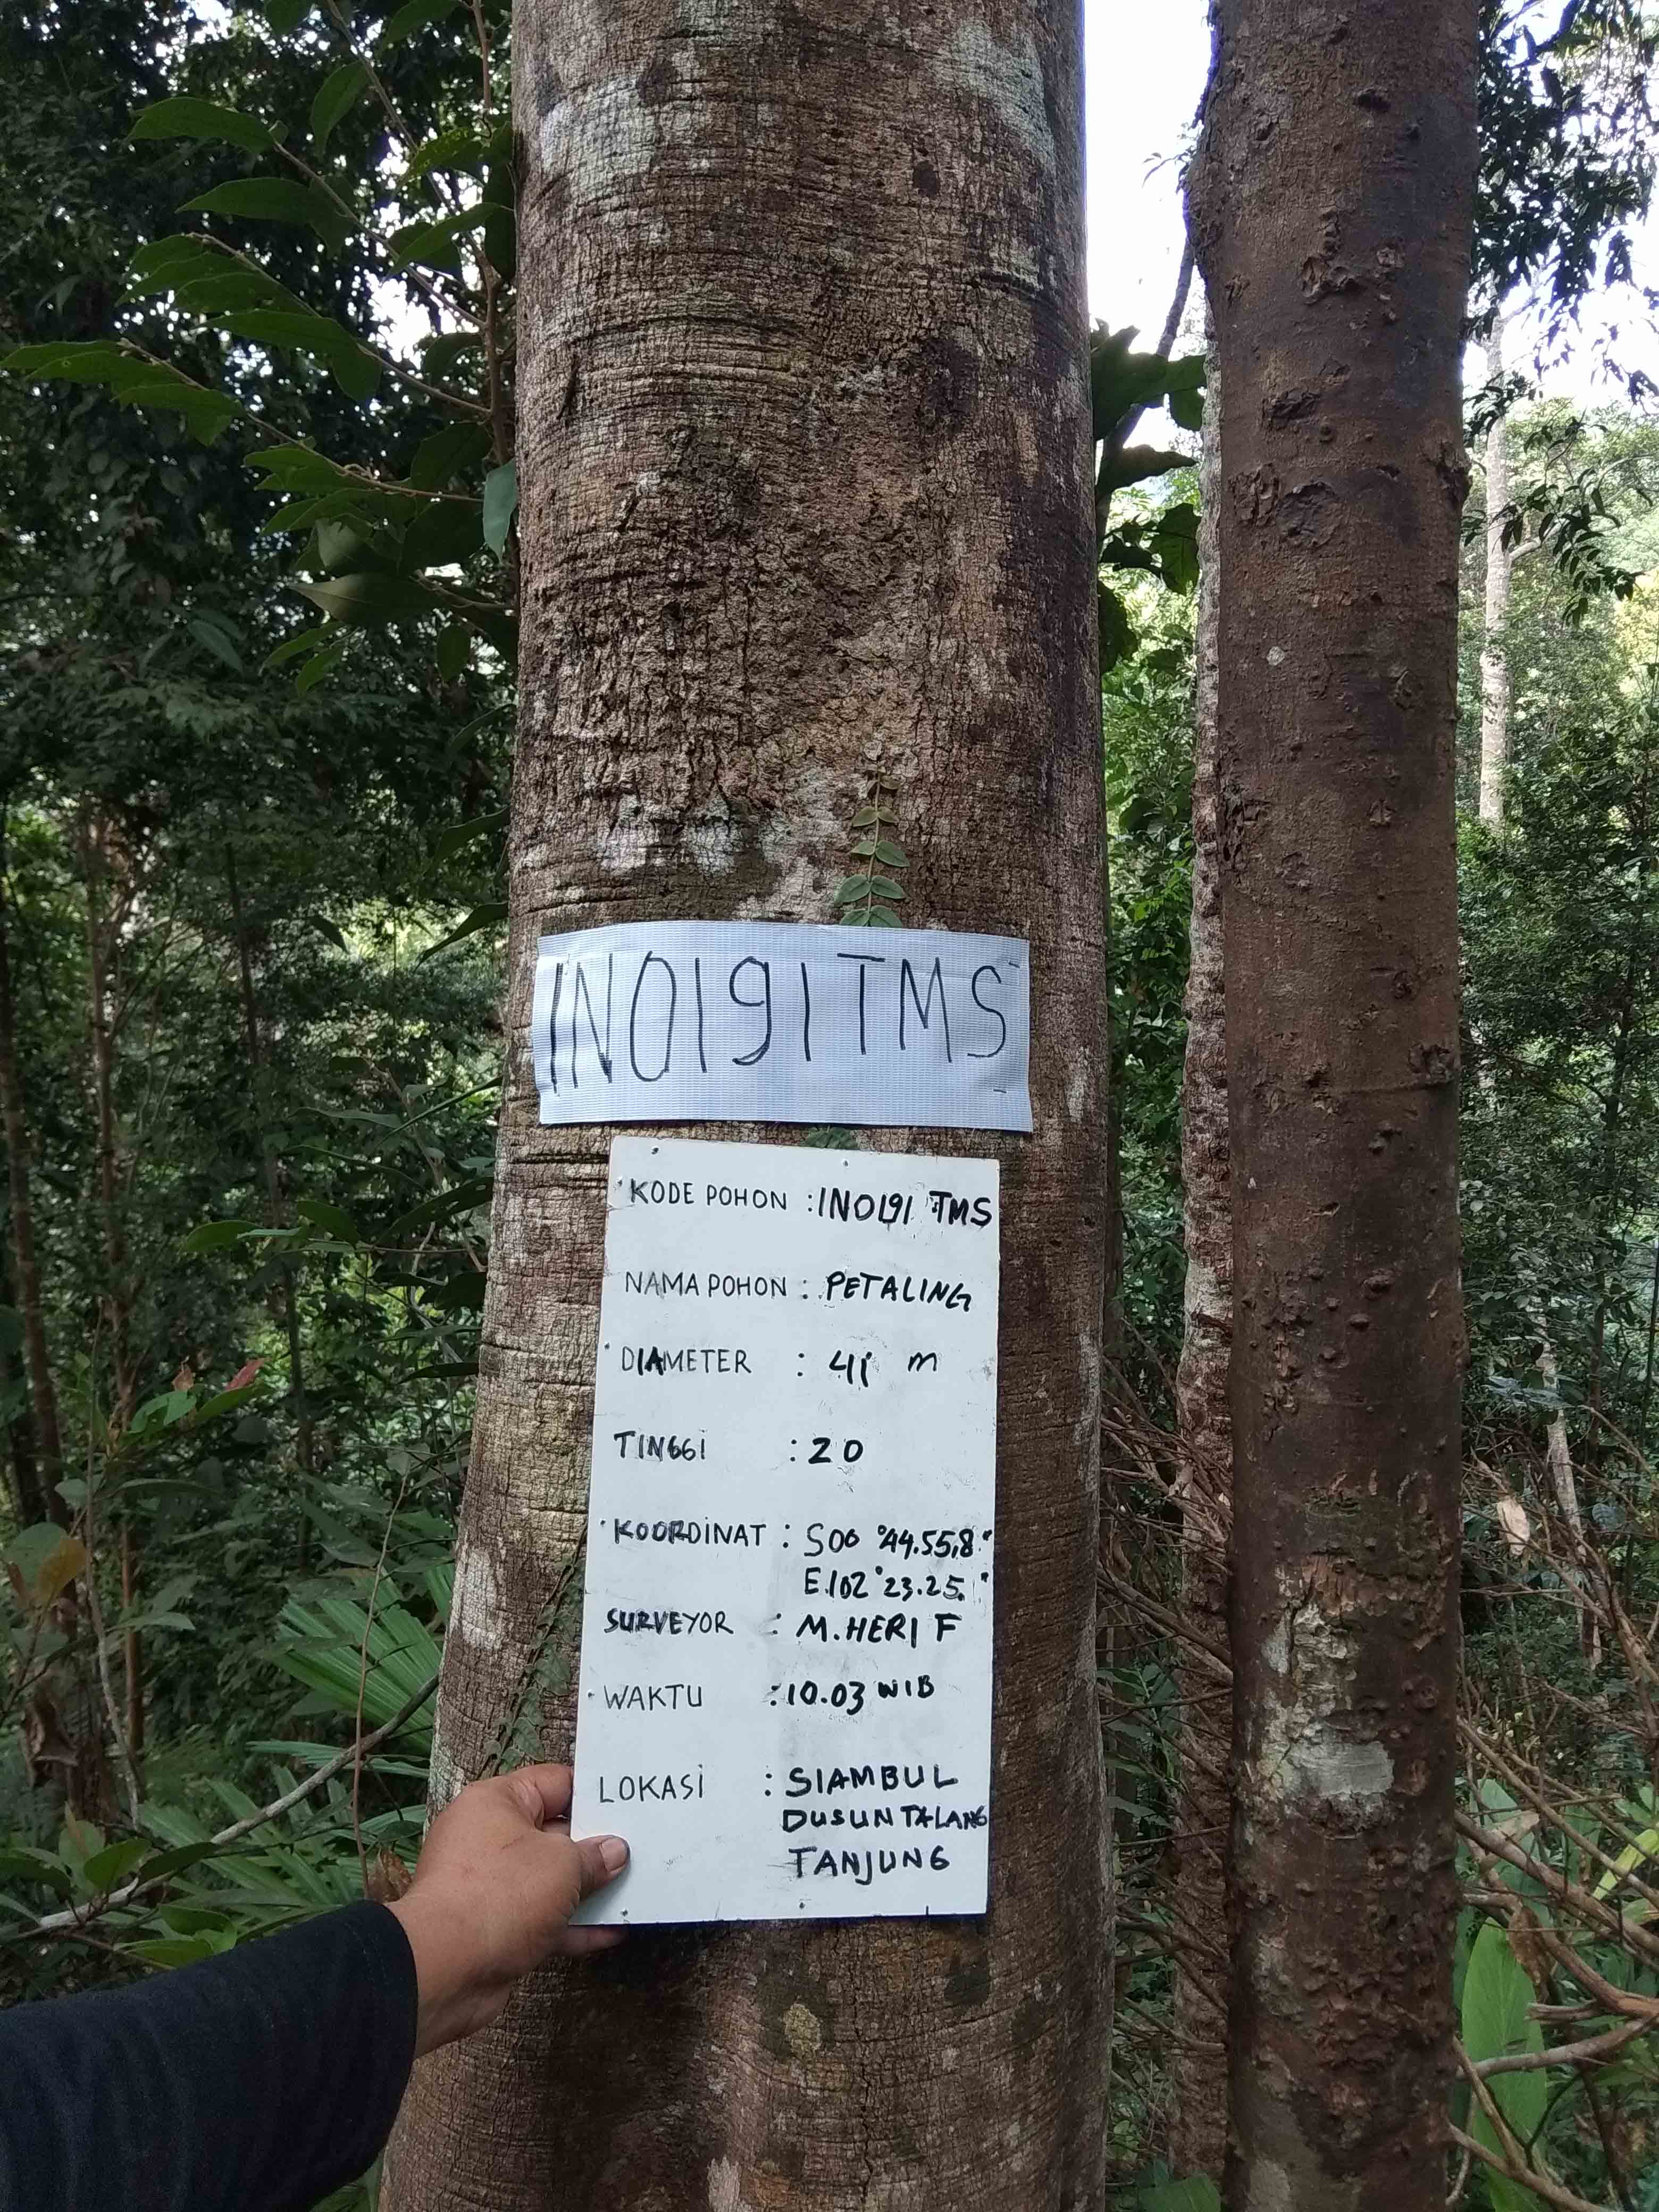 IN0191TMS
KODE POHON : IN0191 TMS
NAMA POHON : PETALING
DIAMETER : 41 m
TINGGI : 20
KOORDINAT : S00 °44.55,8"
E.102°23.25."
SURVEYOR : M.HERI F
WAKTU : 10.03 WIB
LOKASI : SIAMBUL
DUSUN TALANG
TANJUNG